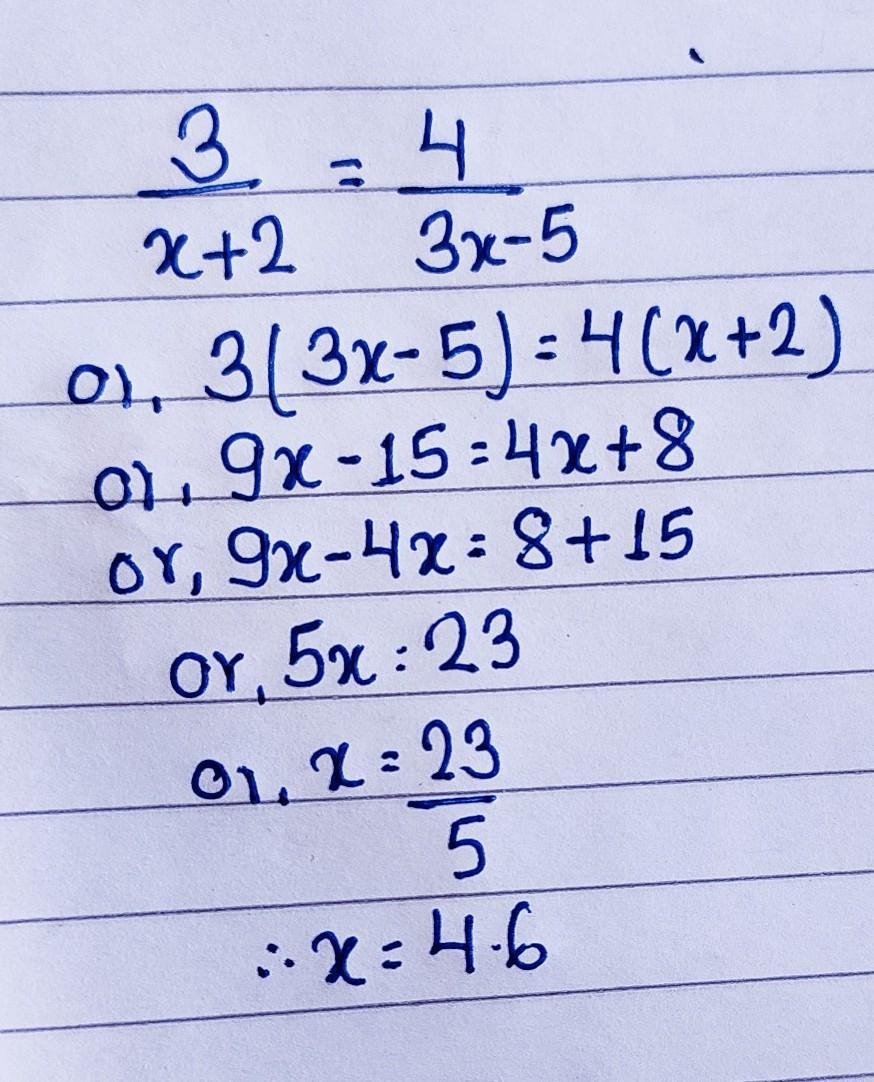 3/(x+2) = 4/(3x-5)
or, 3(3x-5) = 4(x+2)
or, 9x-15 = 4x+8
or, 9x-4x = 8+15
or, 5x = 23
or, x = 23/5
∴ x = 4.6